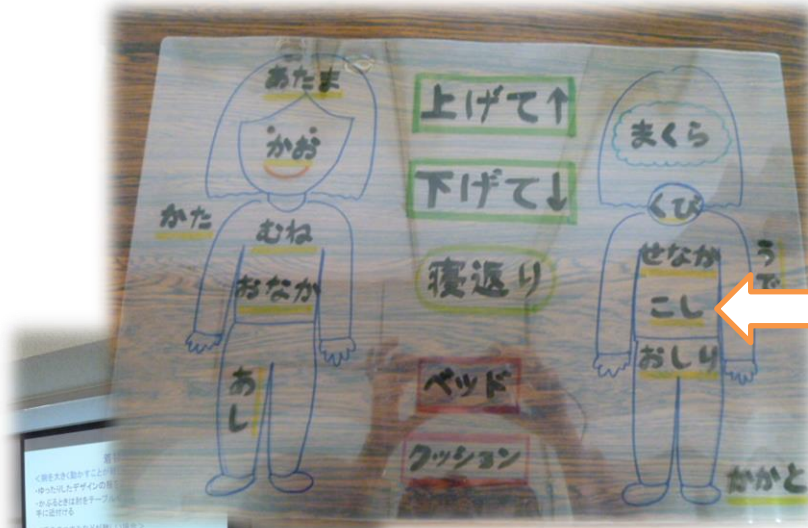 あたま
かお
かた
むね
おなか
あし
上げて↑
下げて↓
寝返り
ベッド
クッション
まくら
くび
せなか
うで
こし
おしり
かかと
・ゆったりしたデザインの